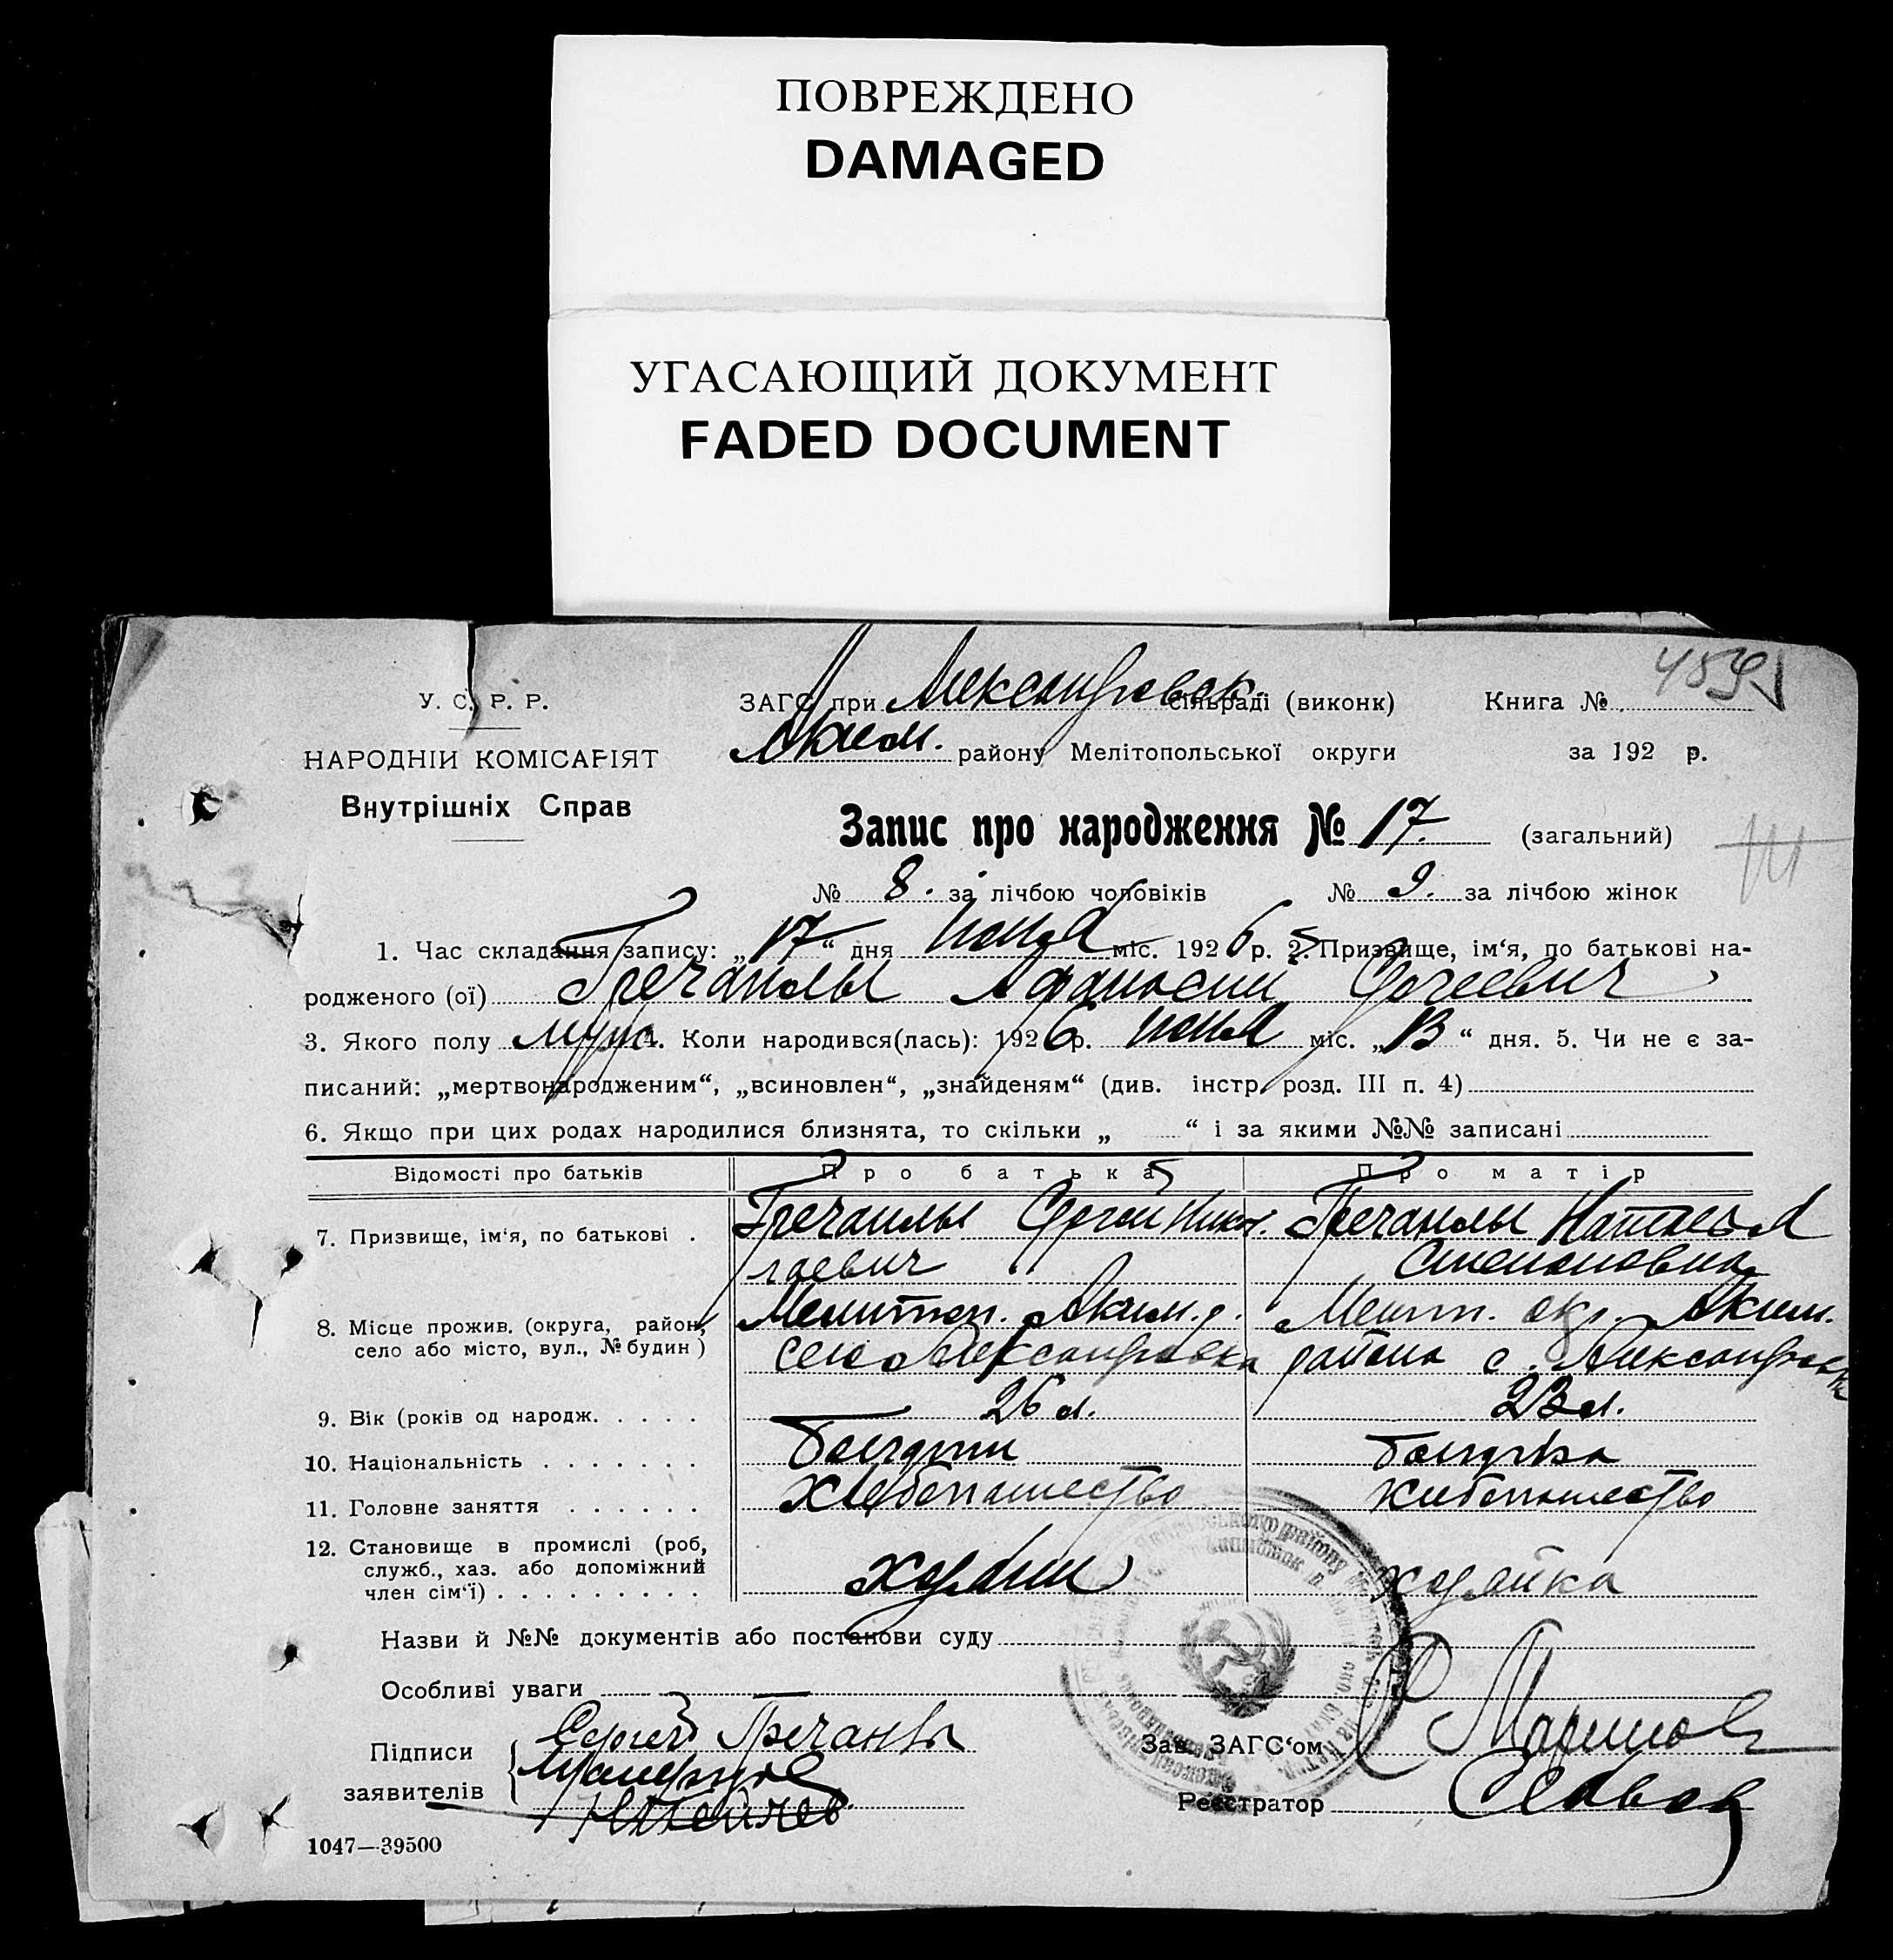 ПОВРЕЖДЕНО
DAMAGED
УГАСАЮЩИЙ ДОКУМЕНТ
FADED DOCUMENT
459
У. С. Р. Р.
ЗАГС при Александровск. сільраді (виконк)
Книга №
НАРОДНІИ КОМІСАРІЯТ
Аким. району Мелітопольської округи
за 192 р.
Внутрішніх Справ
Запис про народження № 17. (загальний)
№ 8. за лічбою чоловіків № 9. за лічбою жінок
1. Час складання запису: „17“ дня июня міс. 1926 р. 2. Призвище, ім‘я, по батькові на-
родженого (ої) Гречанлы Афанасий Сергеевич
3. Якого полу муж. 4. Коли народився(лась): 1926 р. июня міс. „13“ дня. 5. Чи не є за-
писаний: „мертвонародженим“, „всиновлен“, „знайденям“ (див. інстр. розд. III п. 4)
6. Якщо при цих родах народилися близнята, то скільки „ “ і за якими №№ записані
Відомості про батьків
Про батька
Про матір
7. Призвище, ім‘я, по батькові .
Гречанлы Сергей Нико-
лаевич
Гречанлы Наталья
Степановна
8. Місце прожив. (округа, район,
село або місто, вул., № будин)
Мелитоп. Аким. р.
село Александровка
Мелит. окр. Аким.
района с. Александровка
9. Вік (років од народж. . . . .
26 л.
23 л.
10. Національність . . . . . . .
Болгарин
Болгарка
11. Головне заняття . . . . . .
Хлебопашество
Хлебопашество
12. Становище в промислі (роб,
служб., хаз. або допоміжний
член сім‘ї) . . . . . . . . .
хозяин
хозяйка
Назви й №№ документів або постанови суду
Особливі уваги
Підписи
заявителів
Сергей Гречанлы
Зав. ЗАГС‘ом
Реєстратор
1047—39500